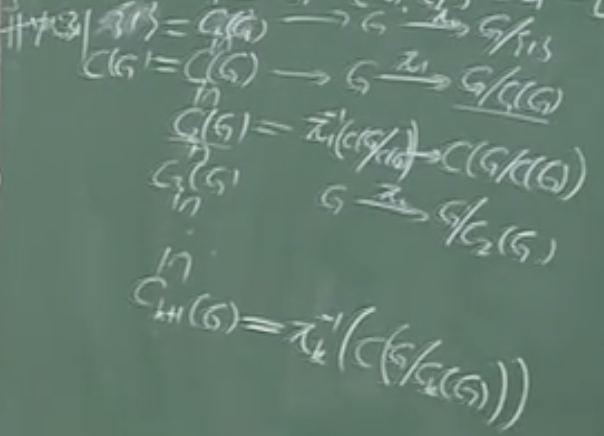 {1} = C₀(G) → G →^{π₀} G/{1}
C(G) = C₁(G) → G →^{π₁} G/C(G)
∩
C₂(G) = π₁⁻¹(C(G/C(G))) → C(G/C(G))
∩
C₃(G) G →^{π₂} G/C₂(G)
∩
⋮
∩
C_{k+1}(G) = π_k⁻¹(C(G/C_k(G)))